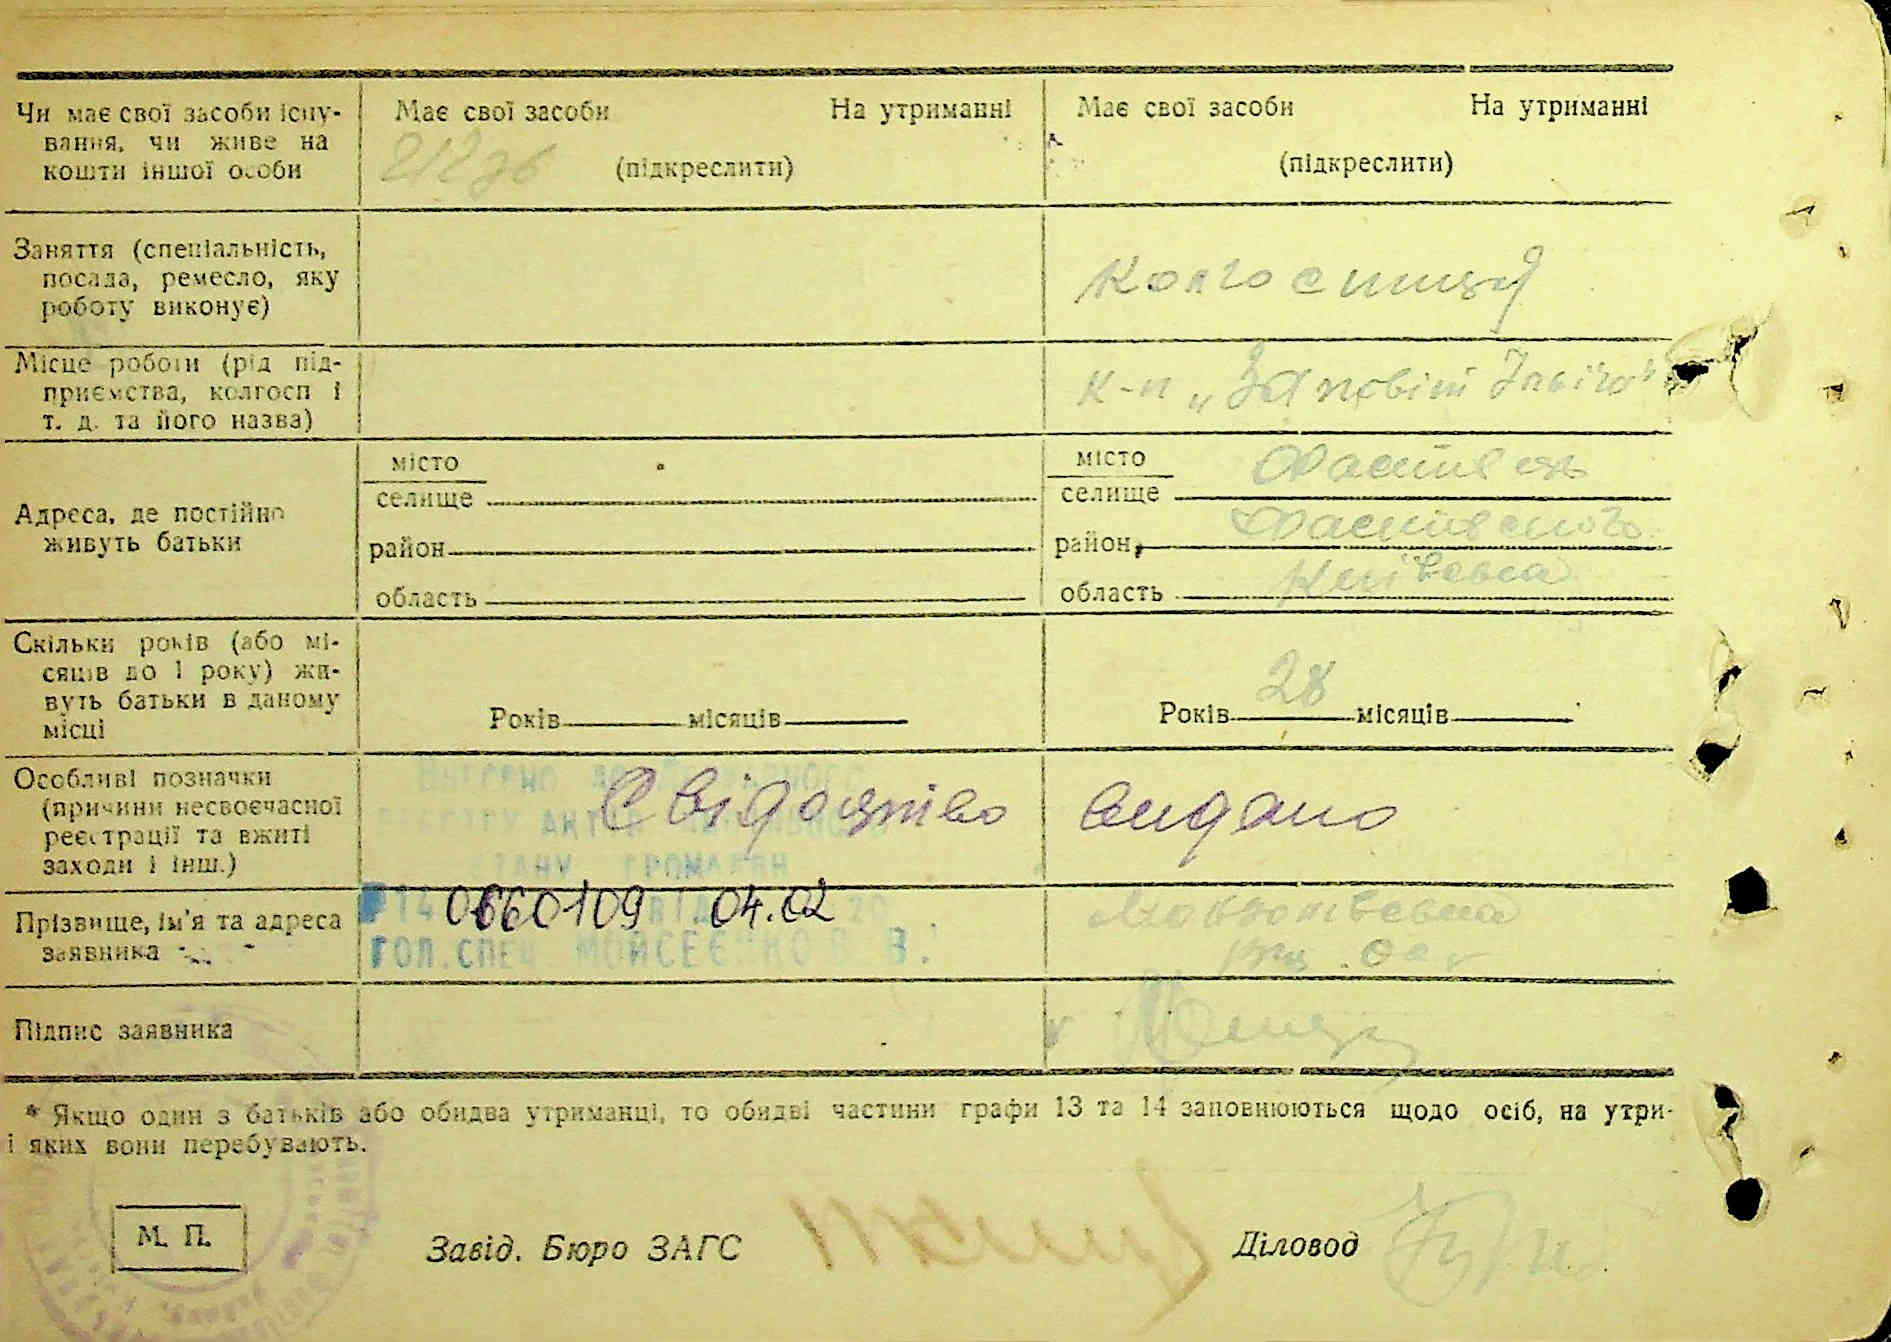 Чи має свої засоби існу-
вання, чи живе на
кошти іншої особи
Має свої засоби На утриманні
(підкреслити)
Має свої засоби На утриманні
(підкреслити)
Заняття (спеціальність,
посада, ремесло, яку
роботу виконує)
колгоспниця
Місце роботи (рід під-
приємства, колгосп і
т. д. та його назва)
к-п „Заповіт Ілліча"
Адреса, де постійно
живуть батьки
місто
селище
район
область
місто
селище Фастівець
район Фастівського
область Київська
Скільки років (або мі-
сяців до 1 року) жи-
вуть батьки в даному
місці
Років місяців
Років 28 місяців
Особливі позначки
(причини несвоєчасної
реєстрації та вжиті
заходи і інш.)
Внесено до Державного
реєстру актів цивільного
стану громадян
Свідоцтво видано
Прізвище, ім'я та адреса
заявника
0660109 04.02
ГОЛ.СПЕЦ МОЙСЕЄНКО В.
Підпис заявника
* Якщо один з батьків або обидва утриманці, то обидві частини графи 13 та 14 заповнюються щодо осіб, на утри-
і яких вони перебувають.
М. П.
Завід. Бюро ЗАГС
Діловод